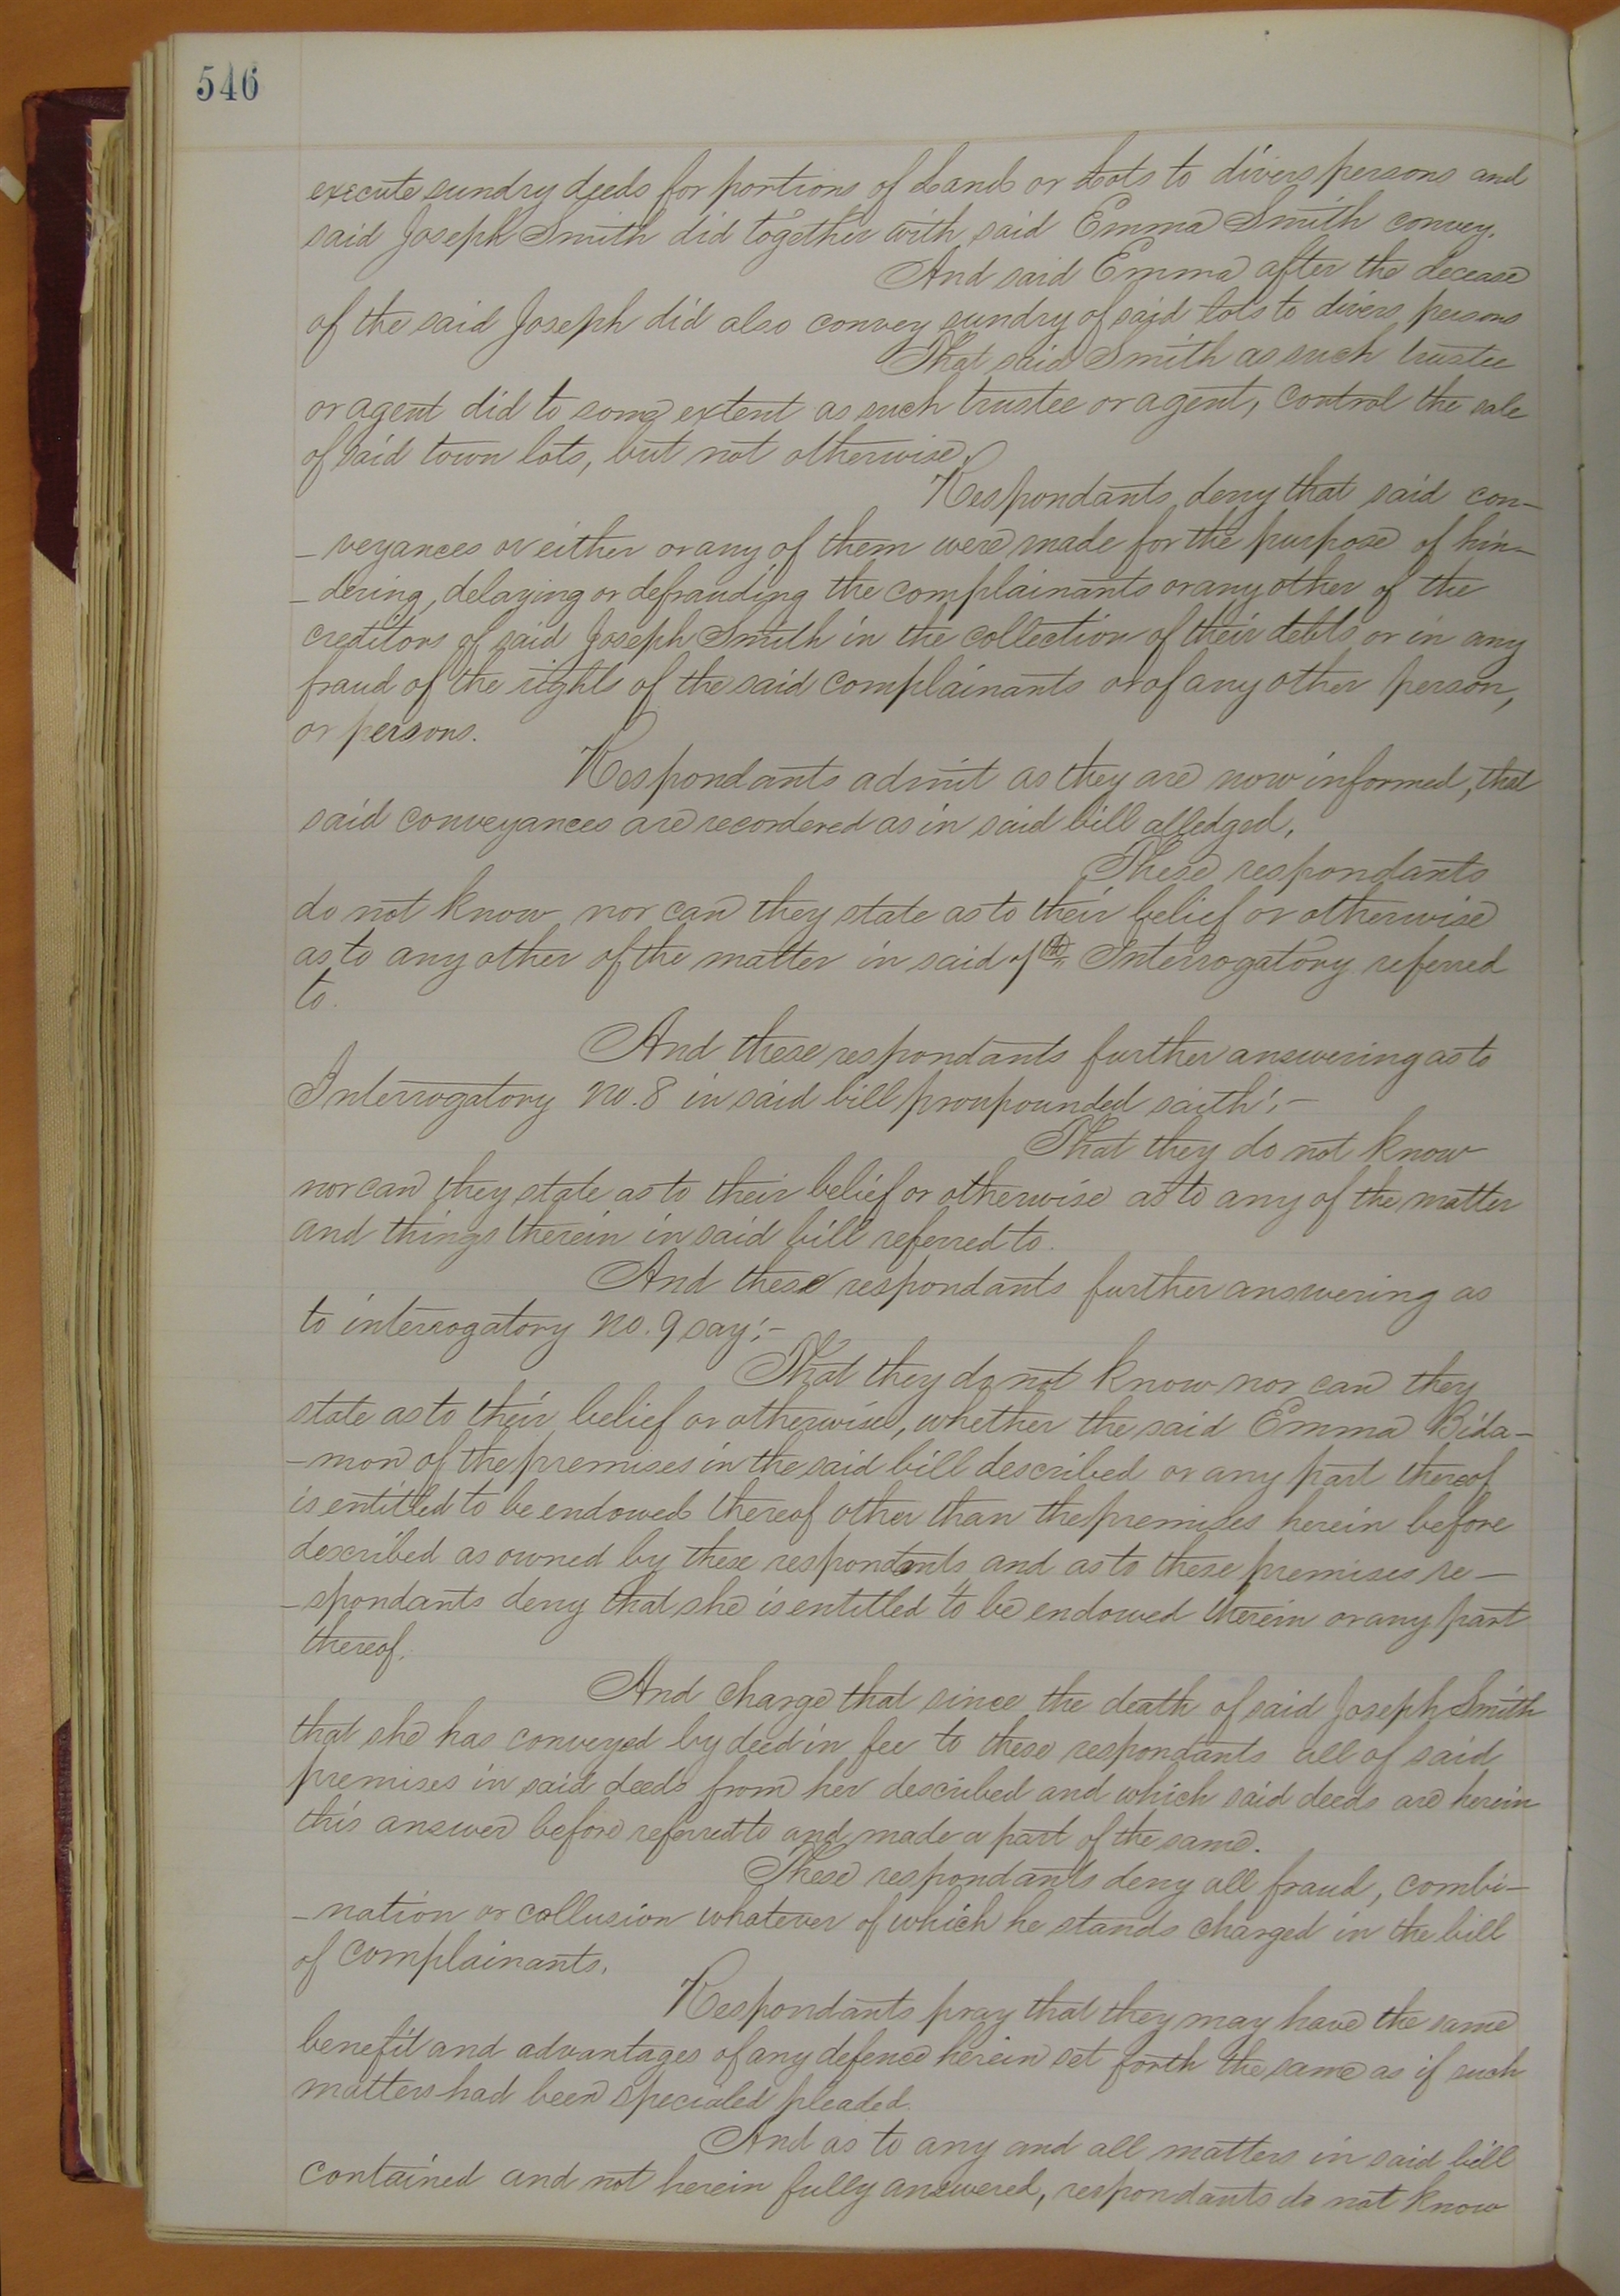 546
execute sundry deeds for portions of Land or Lots to divers persons and
said Joseph Smith did together with said Emma Smith convey.
And said Emma after the decease
of the said Joseph did also convey sundry of said lots to divers persons
That said Smith as such trustee
or agent did to some extent as such trustee or agent, control the sale
of said town lots, but not otherwise.
Respondants deny that said con-
-veyances or either or any of them were made for the purpose of hin-
-dering, delaying or defrauding the complainants or any other of the
creditors of said Joseph Smith in the collection of their debts or in any
fraud of the rights of the said complainants or of any other person,
or persons.
Respondants admit as they are now informed, that
said conveyances are recordered as in said bill alledged.
These respondants
do not know nor can they state as to their belief or otherwise
as to any other of the matter in said 7th Interrogatory referred
to.
And these respondants further answering as to
Interrogatory No. 8 in said bill proupounded saith:-
That they do not know
nor can they state as to their belief or otherwise as to any of the matter
and things therein in said bill referred to.
And these respondants further answering as
to interrogatory No. 9 say:-
That they do not know nor can they
state as to their belief or otherwise, whether the said Emma Bida-
-mon of the premises in the said bill described or any part thereof
is entitled to be endowed thereof other than the premises herein before
described as owned by these respondants and as to these premises re-
-spondants deny that she is entitled to be endowed therein or any part
thereof.
And charge that since the death of said Joseph Smith
that she has conveyed by deed in fee to these respondants all of said
premises in said deeds from her described and which said deeds are herein
this answer before referred to and made a part of the same.
These respondants deny all fraud, combi-
-nation or collusion whatever of which he stands charged in the bill
of complainants.
Respondants pray that they may have the same
benefit and advantages of any defence herein set forth the same as if such
matters had been specialed pleaded.
And as to any and all matters in said bill
contained and not herein fully answered, respondants do not know